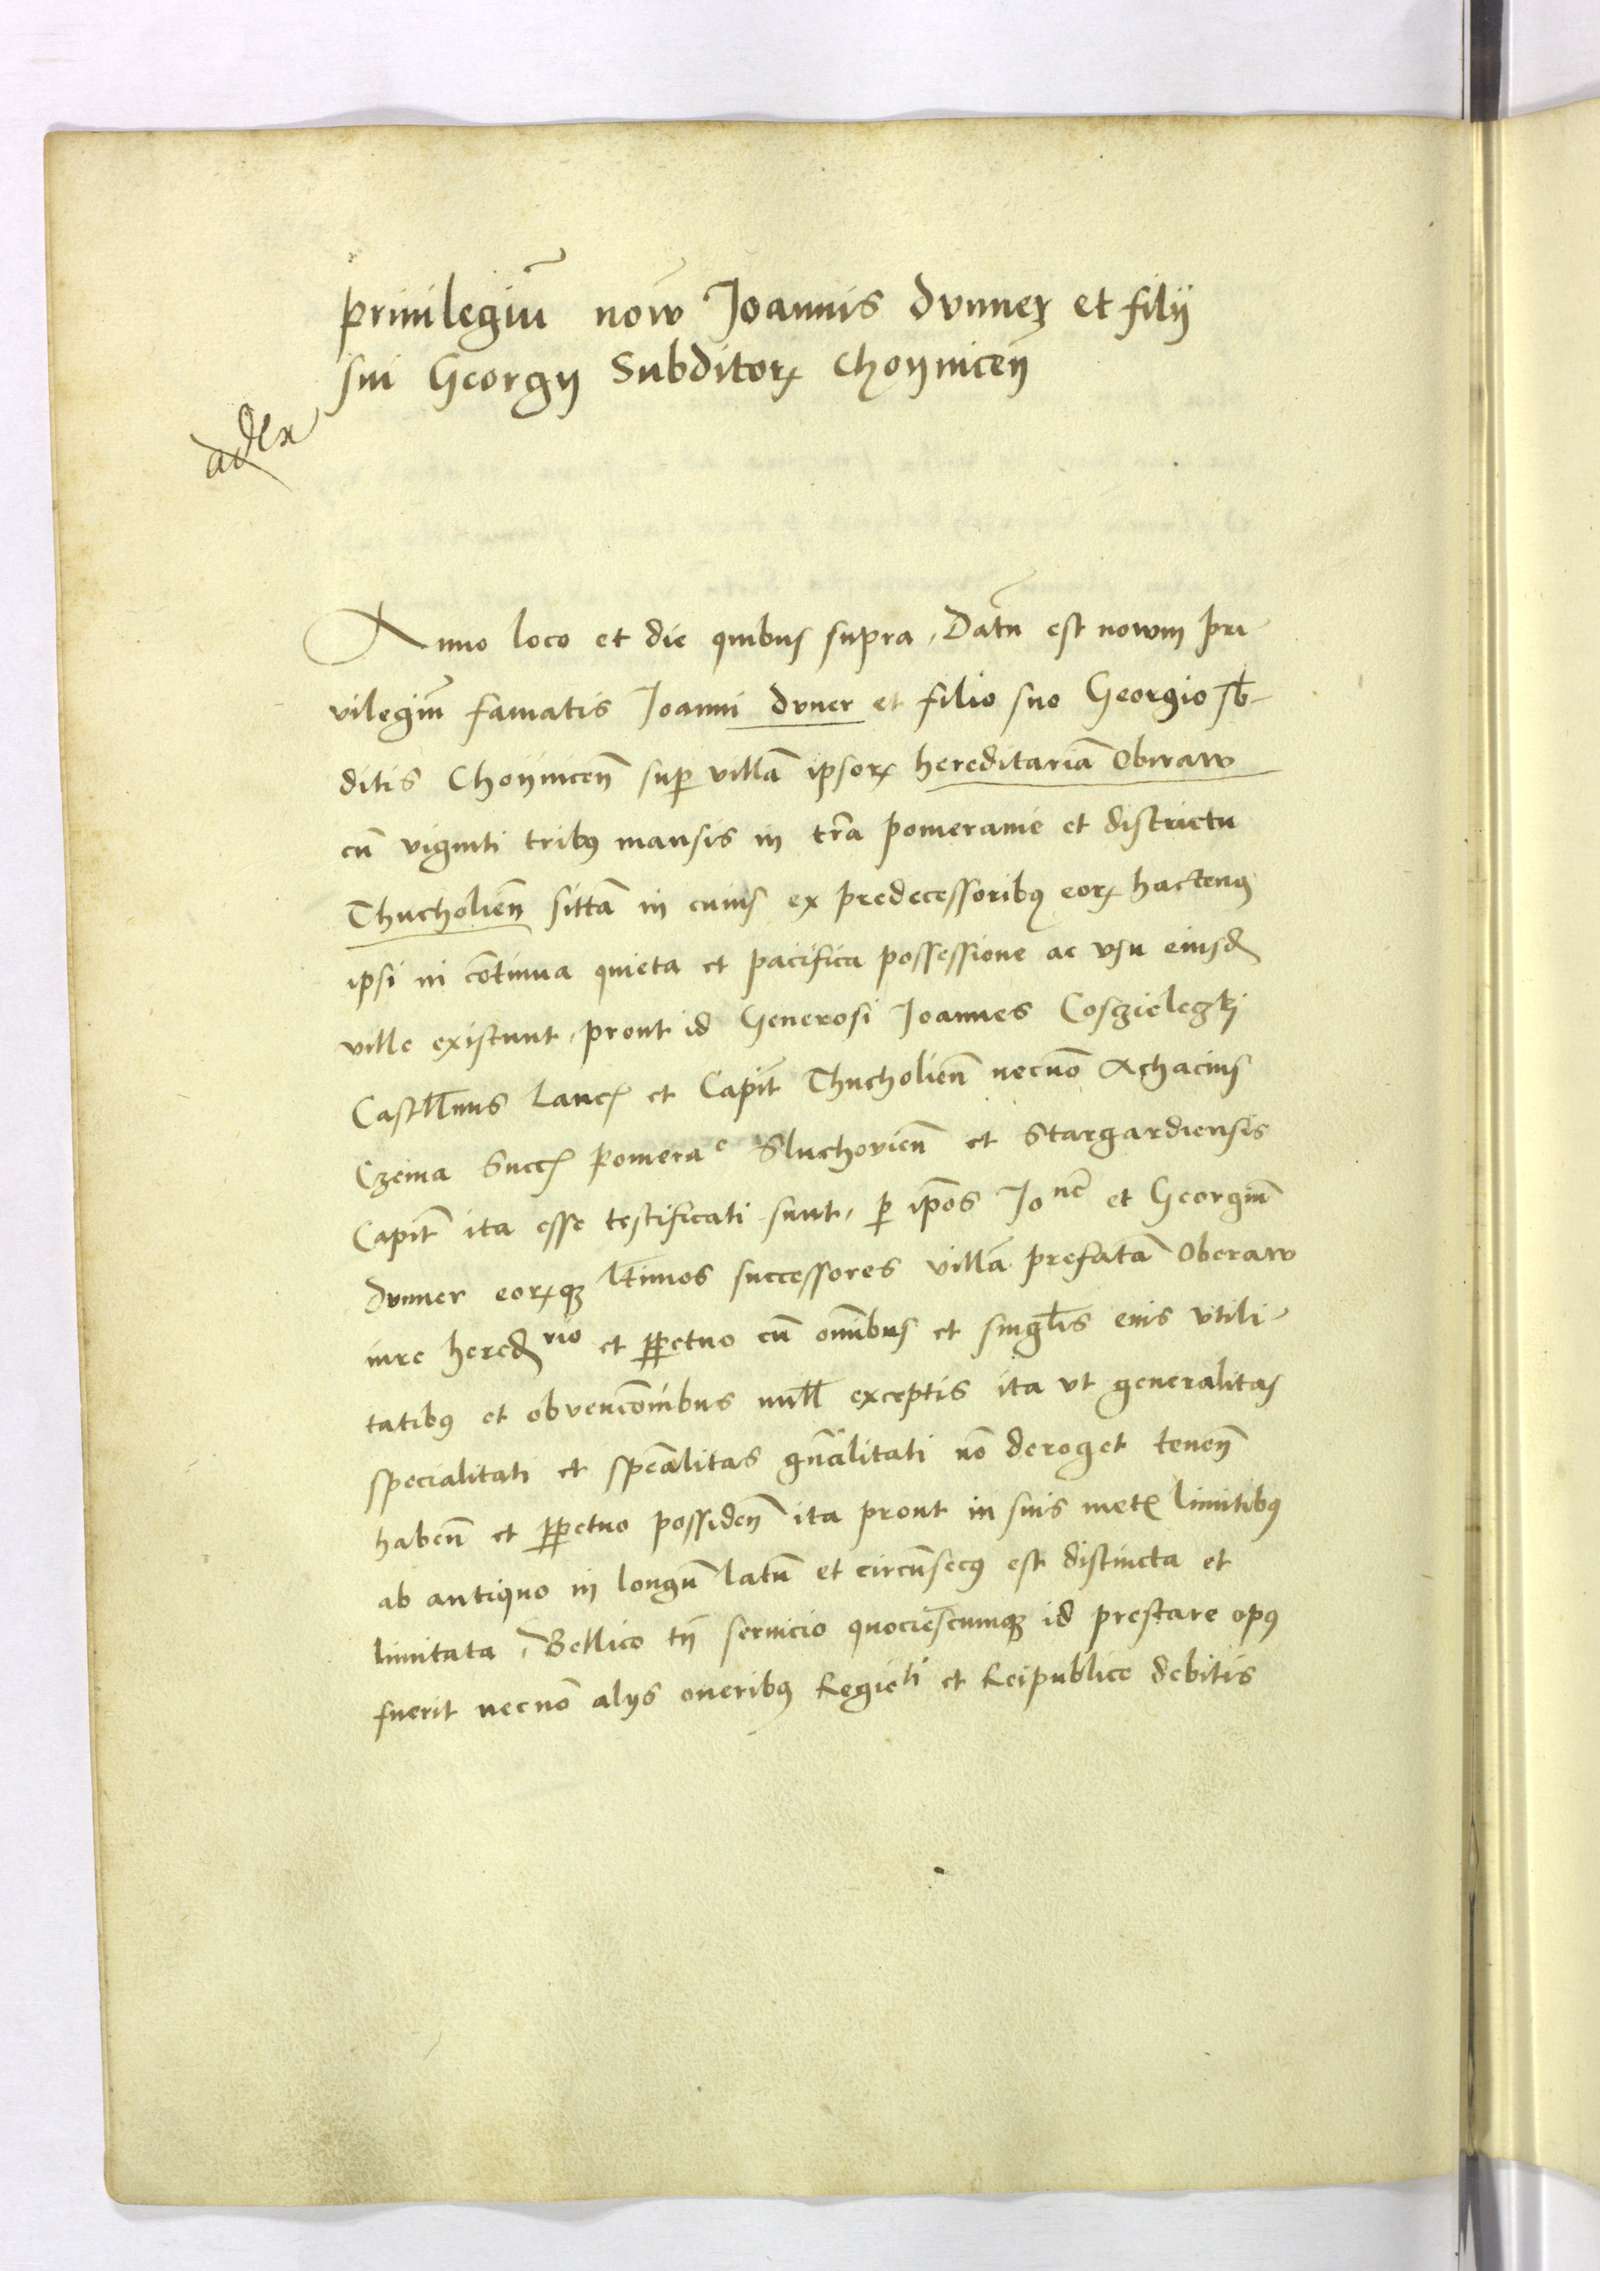 Priuilegiū nowū Joannis Dvnner et filij
sui Georgij Subditorꝝ Choyniceñ
Anno loco et die quibus supra, Datū est nowm pri-
vilegiū famatis Joanni Dvner et filio suo Georgio sb-
ditis Choynicen̄ sup villā ipsorꝝ hereditariā Obraw
cū viginti tribꝰ mansis in tr̄a pomeranie et districtu
Thucholien̄ sittā in cuius ex predecessoribꝰ eorꝝ hactenꝰ
ipsi in cōtinua quieta et pacifica possessione ac vsu eiusd
ville existunt, prout id Generosi Joannes Coszieleczki
Castll̄nus Lancꝭ et Capit̄ Thucholien̄ necnō Achacius
Czema Succꝭ pomeraᵉ Sluchovien̄ et Stargardiensis
Capit̄ ita esse testificati sunt, p ip̄os Joⁿᵉ et Georgiū
Dvnner eorꝝqꝫ lt̄imos successores villā prefatā Oberaw
iure heredʳⁱᵒ et ꝑpetuo cū om̄ibus et singl̄is eius vtili-
tatibꝰ et obvenc̄onibus null̄ exceptis ita vt generalitas
specialitati et spec̄alitas gn̄alitati nō deroget tenen̄
haben̄ et ꝑpetuo possiden̄ ita prout in suis metꝭ limitibꝰ
ab antiquo in longū latū et circūsecꝰ est distincta et
limitata, Bellico tn̄ seruicio quociescumqꝫ id prestare opꝰ
fuerit necnō alijs oneribꝰ Regieᵗⁱ et Reipublice debitis